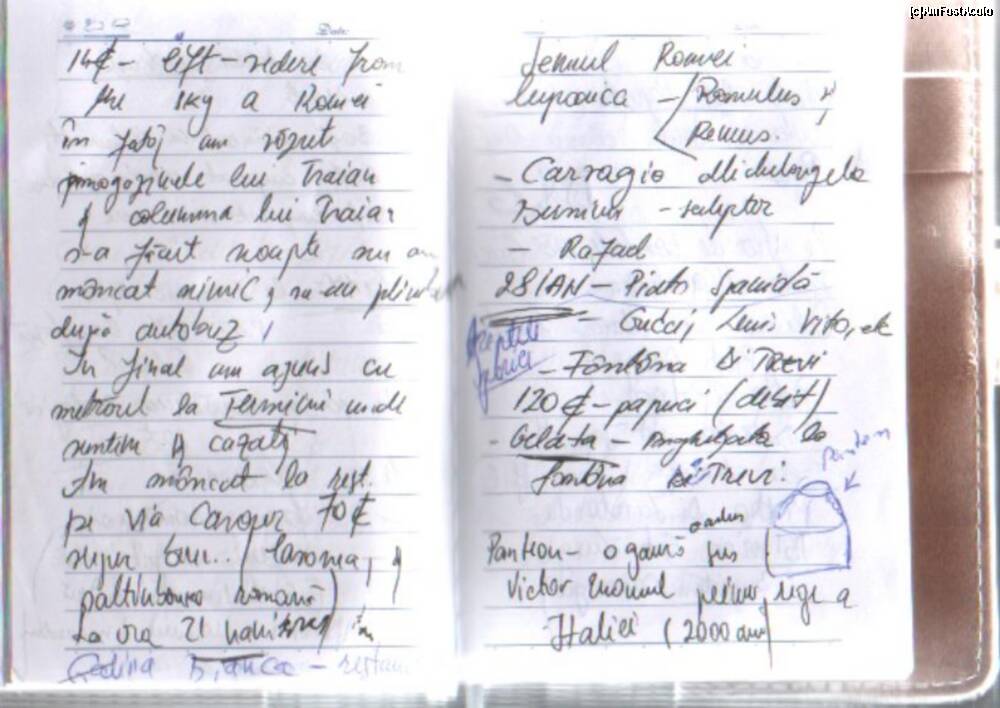 [c]AmFostAcolo
Date:
14€ - lift - vedere from
the sky a Romei
în față am văzut
magazinele lui Traian
și columna lui Traian
s-a făcut noapte nu am
mâncat nimic, ne-am plimbat
după autobuz
În final am ajuns cu
metroul la Termini unde
suntem și cazați
Am mâncat la rest.
pe via Cavour 70€
super bun.. (lasagna, și
română)
La ora 21
Gallina Bianca -
Semnul Romei
lupoaica - Romulus și
Remus.
- Carragio Michelangelo
Bernini - sculptor
- Rafael
28 IAN - Piața Spaniolă
- Gucci, Louis Viton, etc
- Fântâna Di Trevi
120 € - papuci (
- Gelata - la
fântâna Di Trevi.
panteon
Panteon - o gaură sus
Victor Emanuel primul rege a
Italiei (2000 ani)